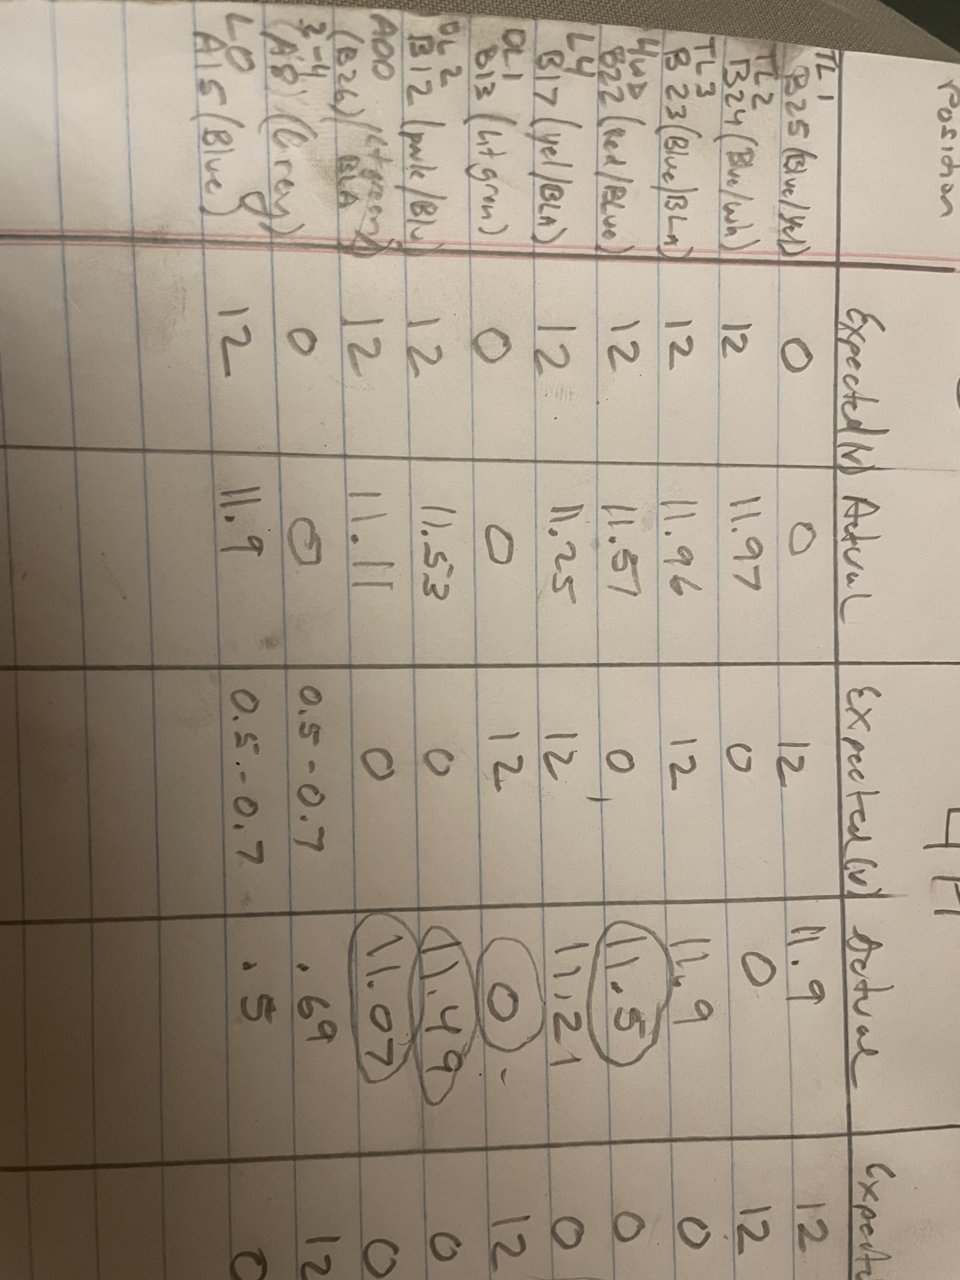 Position
4H
Expected (v) Actual Expected (v) Actual Expecte
TL1
B25 (Blue/yel) 0 0 12 11.9 12
TL2
B24 (Blue/wh) 12 11.97 0 0 12
TL3
B23 (Blue/BLA) 12 11.96 12 11.9 0
4WD
B22 (Red/BLue) 12 11.57 0 11.5 0
L4
B17 (yel/BLA) 12 11.25 12 11.21 0
DL1
B13 (Lt grn) 0 0 12 0 12
DL2
B12 (pnk/Blu) 12 11.53 0 11.49 0
ADD
(B26) (Lt green/BLA) 12 11.11 0 11.07 0
2-4
(A8) (Grey) 0 0 0.5-0.7 .69 12
LO
A15 (Blue) 12 11.9 0.5-0.7 .5 0